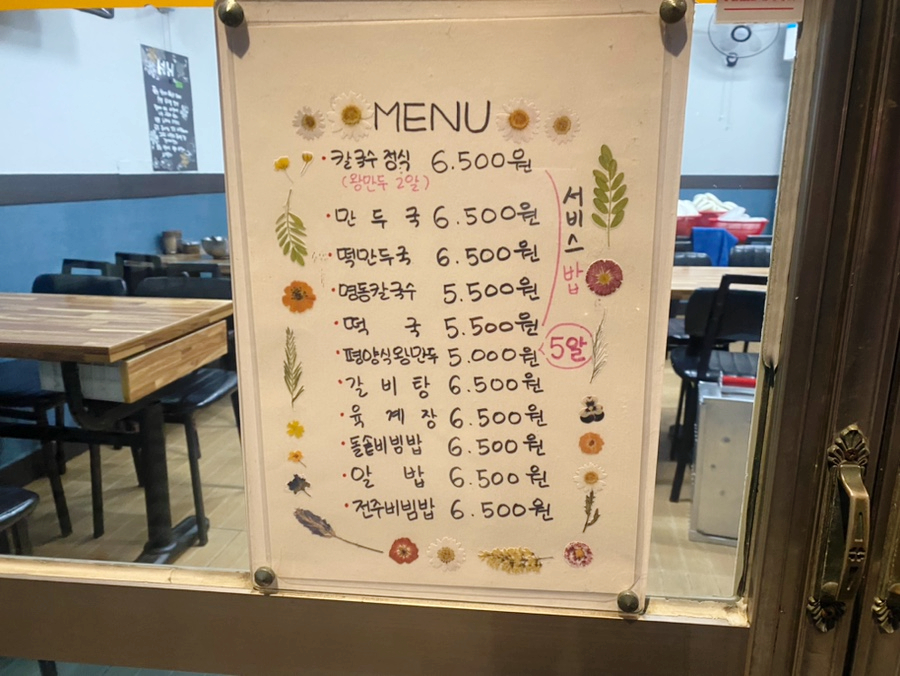 MENU
· 칼국수 정식 6.500원
(왕만두 2알)
· 만두국 6.500원
· 떡만두국 6.500원
· 명동칼국수 5.500원
· 떡국 5.500원
서비스 밥
· 평양식왕만두 5.000원 5알
· 갈비탕 6.500원
· 육계장 6.500원
· 돌솥비빔밥 6.500원
· 알밥 6.500원
· 전주비빔밥 6.500원